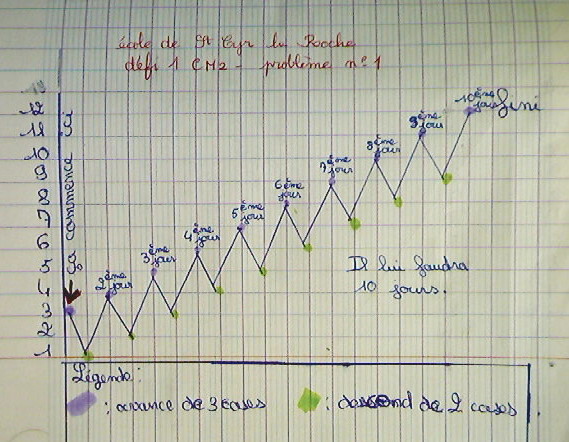 école de St Cyr la Roche
défi 1 CM2 - problème n°1
13
12
11
10
9
8
7
6
5
4
3
2
1
ça commence ici
2ème jour
3ème jour
4ème jour
5ème jour
6ème jour
7ème jour
8ème jour
9ème jour
10ème jour fini
Il lui faudra
10 jours.
Légende :
: avance de 3 cases
: descend de 2 cases